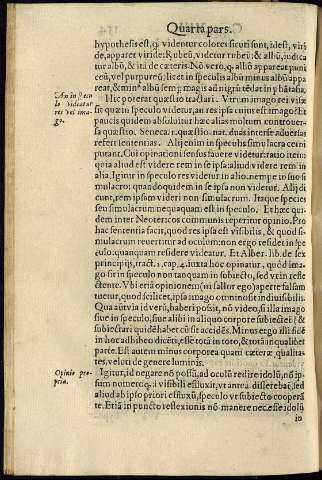 Quarta pars.
hypothesis est, q. videntur colores sicuti sunt, id est, viri
de, apparet viride: & rubeū, videtur rubeū: & albū, iudica
tur albū, & ita de cæteris. Nō verò, q. albū appareat puni
ceū, vel purpureū: licet in speculis albū minus albū appa
reat, & min⁹ albū semp magis ad nigrū tēdat in phātasia.
An in specu
lo videatur
res vel ima-
go.
Hic poterat quæstio tractari. Vtrum imago rei visæ
sit quæ in speculo videtur, an res ipsa cuius est imago? Et
paucis quidem absoluitur hæc alias multum controuer-
sa quæstio. Seneca. 1. quæstio. nat. duas inter se aduersas
refert sententias. Alij enim in speculis simulacra cerni
putant. Cui opinioni sensus fauere videtur: ratio item:
quia aliud est videre rem in se ipsa: aliud videre rem in
alia. Igitur in speculo res videtur in alio. nempe in suo si
mulacro: quandoquidem in se ipsa non videtur. Alij di
cunt, rem ipsam videri non simulacrum. Itaque species
seu simulacrum nequaquam est in speculo. Et hæc qui-
dem inter Neotericos communis reperitur opinio. Pro
hac sententia facit, quod res ipsa est visibilis, & quod si
mulacrum reuertitur ad oculum: non ergo residet in spe
culo: quanquam residere videatur. Et Alber. lib. de sex
principijs, tract. 1. cap. 4. iuxta hoc opinatur, quòd ima-
go sit in speculo non tanquam in subiecto, sed vt in refle
ctente. Vbi etiā opinionem (ni fallor ego) aperte falsam
tuetur, quod scilicet, ipsa imago omnino sit indiuisibilis.
Qua autvia id verū, haberi possit, nō video, si illa imago
siue in speculo, siue alibi in aliquo corpore subiectet? &
subiectari quidē habet cū sit accidēs. Minus ergo illi fidē
in hoc adhibeo dicēti, esse totā in toto, & totā in qualibet
parte. Est autem minus corporea quam cæteræ qualita-
tes, veluti de genere luminis.
Opinio pro-
pria.
Igitur, id negare nō possū, ad oculū redire idolū, nō ip-
sum numero q. à visibili effluxit, vt antea disserebat, sed
aliud ab ipso priori effluxū, speculo vt subiecto cooperā
te. Etiā in puncto reflexionis nō manere necesse est idolū
io